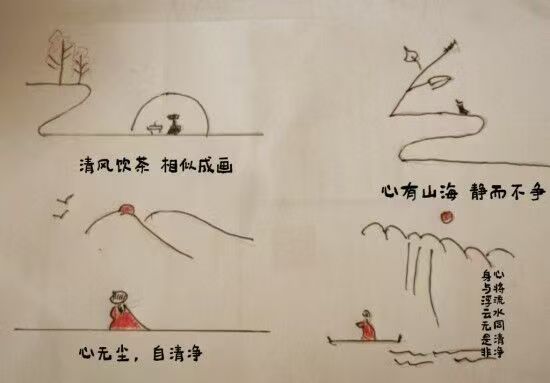 清风饮茶 相似成画
心有山海 静而不争
心无尘，自清净
心将流水同清净
身与浮云无是非